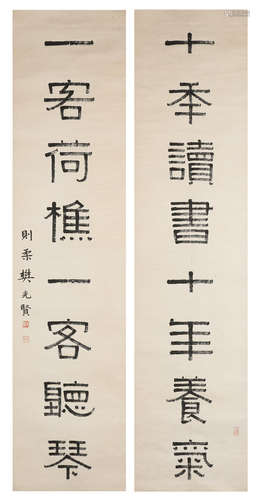 十年讀書十年養氣
一客荷樵一客聽琴
則柔樊光賢